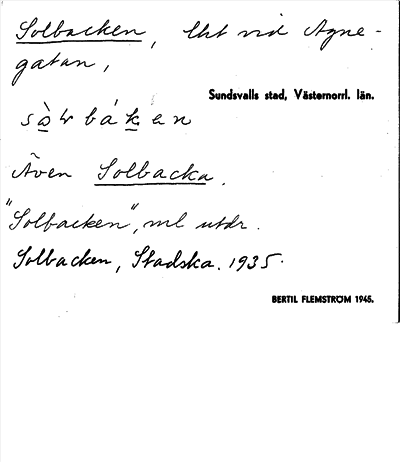 Solbacken, lht vid Agne-
gatan,
Sundsvalls stad, Västernorrl. län.
sòɫbáken
Även Solbacka.
"Solbacken", ml utdr.
Solbacken, Stadska. 1935.
BERTIL FLEMSTRÖM 1945.